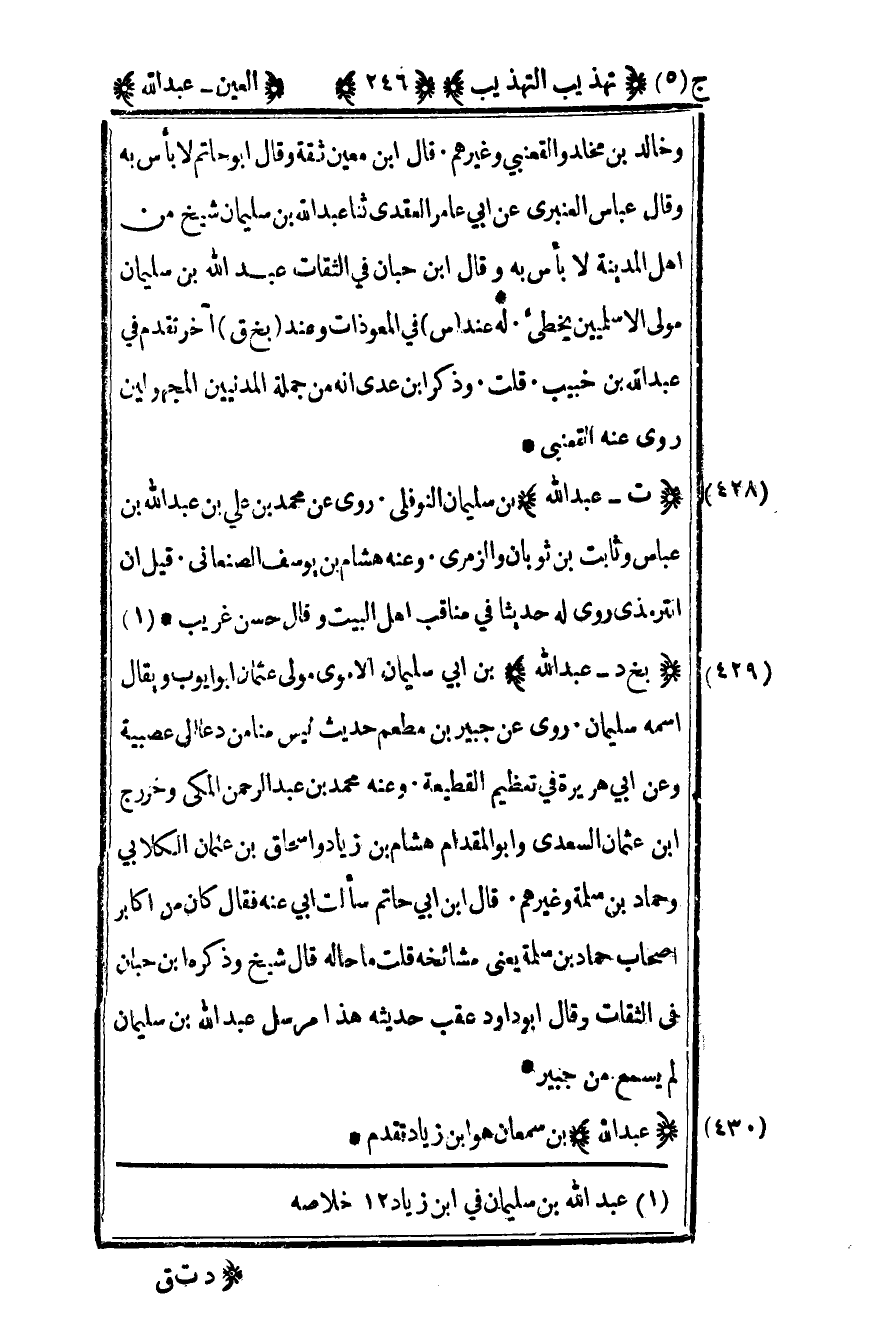 ج (٥) ﴿ تهذيب التهذيب ﴾ ﴿ ٢٤٦ ﴾ ﴿ العين - عبدالله ﴾
وخالد بن مخلد والقعنبي وغيرهم ٠ قال ابن معين ثقة وقال ابو حاتم لا بأس به
وقال عباس العنبرى عن ابي عامر العقدى ثنا عبدالله بن سليمان شيخ من
اهل المدينة لا بأس به وقال ابن حبان في الثقات عبد الله بن سليمان
مولى الاسلميين يخطئ ٠ له عند (س) في المعوذات وعند (بخ ق) آخر تقدم في
عبدالله بن خبيب ٠ قلت ٠ وذكر ابن عدى انه من جملة المدنيين المجهولين
روى عنه القعنبى *
(٤٢٨) ﴿ ت - عبدالله ﴾ بن سليمان النوفلى ٠ روى عن محمد بن علي بن عبدالله بن
عباس وثابت بن ثوبان والزهرى ٠ وعنه هشام بن يوسف الصنعانى ٠ قيل ان
الترمذى روى له حديثا في مناقب اهل البيت وقال حسن غريب * (١)
(٤٢٩) ﴿ بخ د - عبدالله ﴾ بن ابي سليمان الاموى مولى عثمان ابو ايوب ويقال
اسمه سليمان ٠ روى عن جبير بن مطعم حديث ليس منا من دعا الى عصبية
وعن ابي هريرة في تعظيم القطيعة ٠ وعنه محمد بن عبدالرحمن المكى وخزرج
ابن عثمان السعدى وابو المقدام هشام بن زياد واسحاق بن عثمان الكلابي
وحماد بن سلمة وغيرهم ٠ قال ابن ابي حاتم سألت ابي عنه فقال كان من اكابر
اصحاب حماد بن سلمة يعنى مشائخه قلت ما حاله قال شيخ وذكره ابن حبان
فى الثقات وقال ابو داود عقب حديثه هذا مرسل عبد الله بن سليمان
لم يسمع من جبير *
(٤٣٠) ﴿ عبدالله ﴾ بن سمعان هو ابن زياد تقدم *
(١) عبد الله بن سليمان في ابن زياد ١٢ خلاصه
﴿ د ت ق